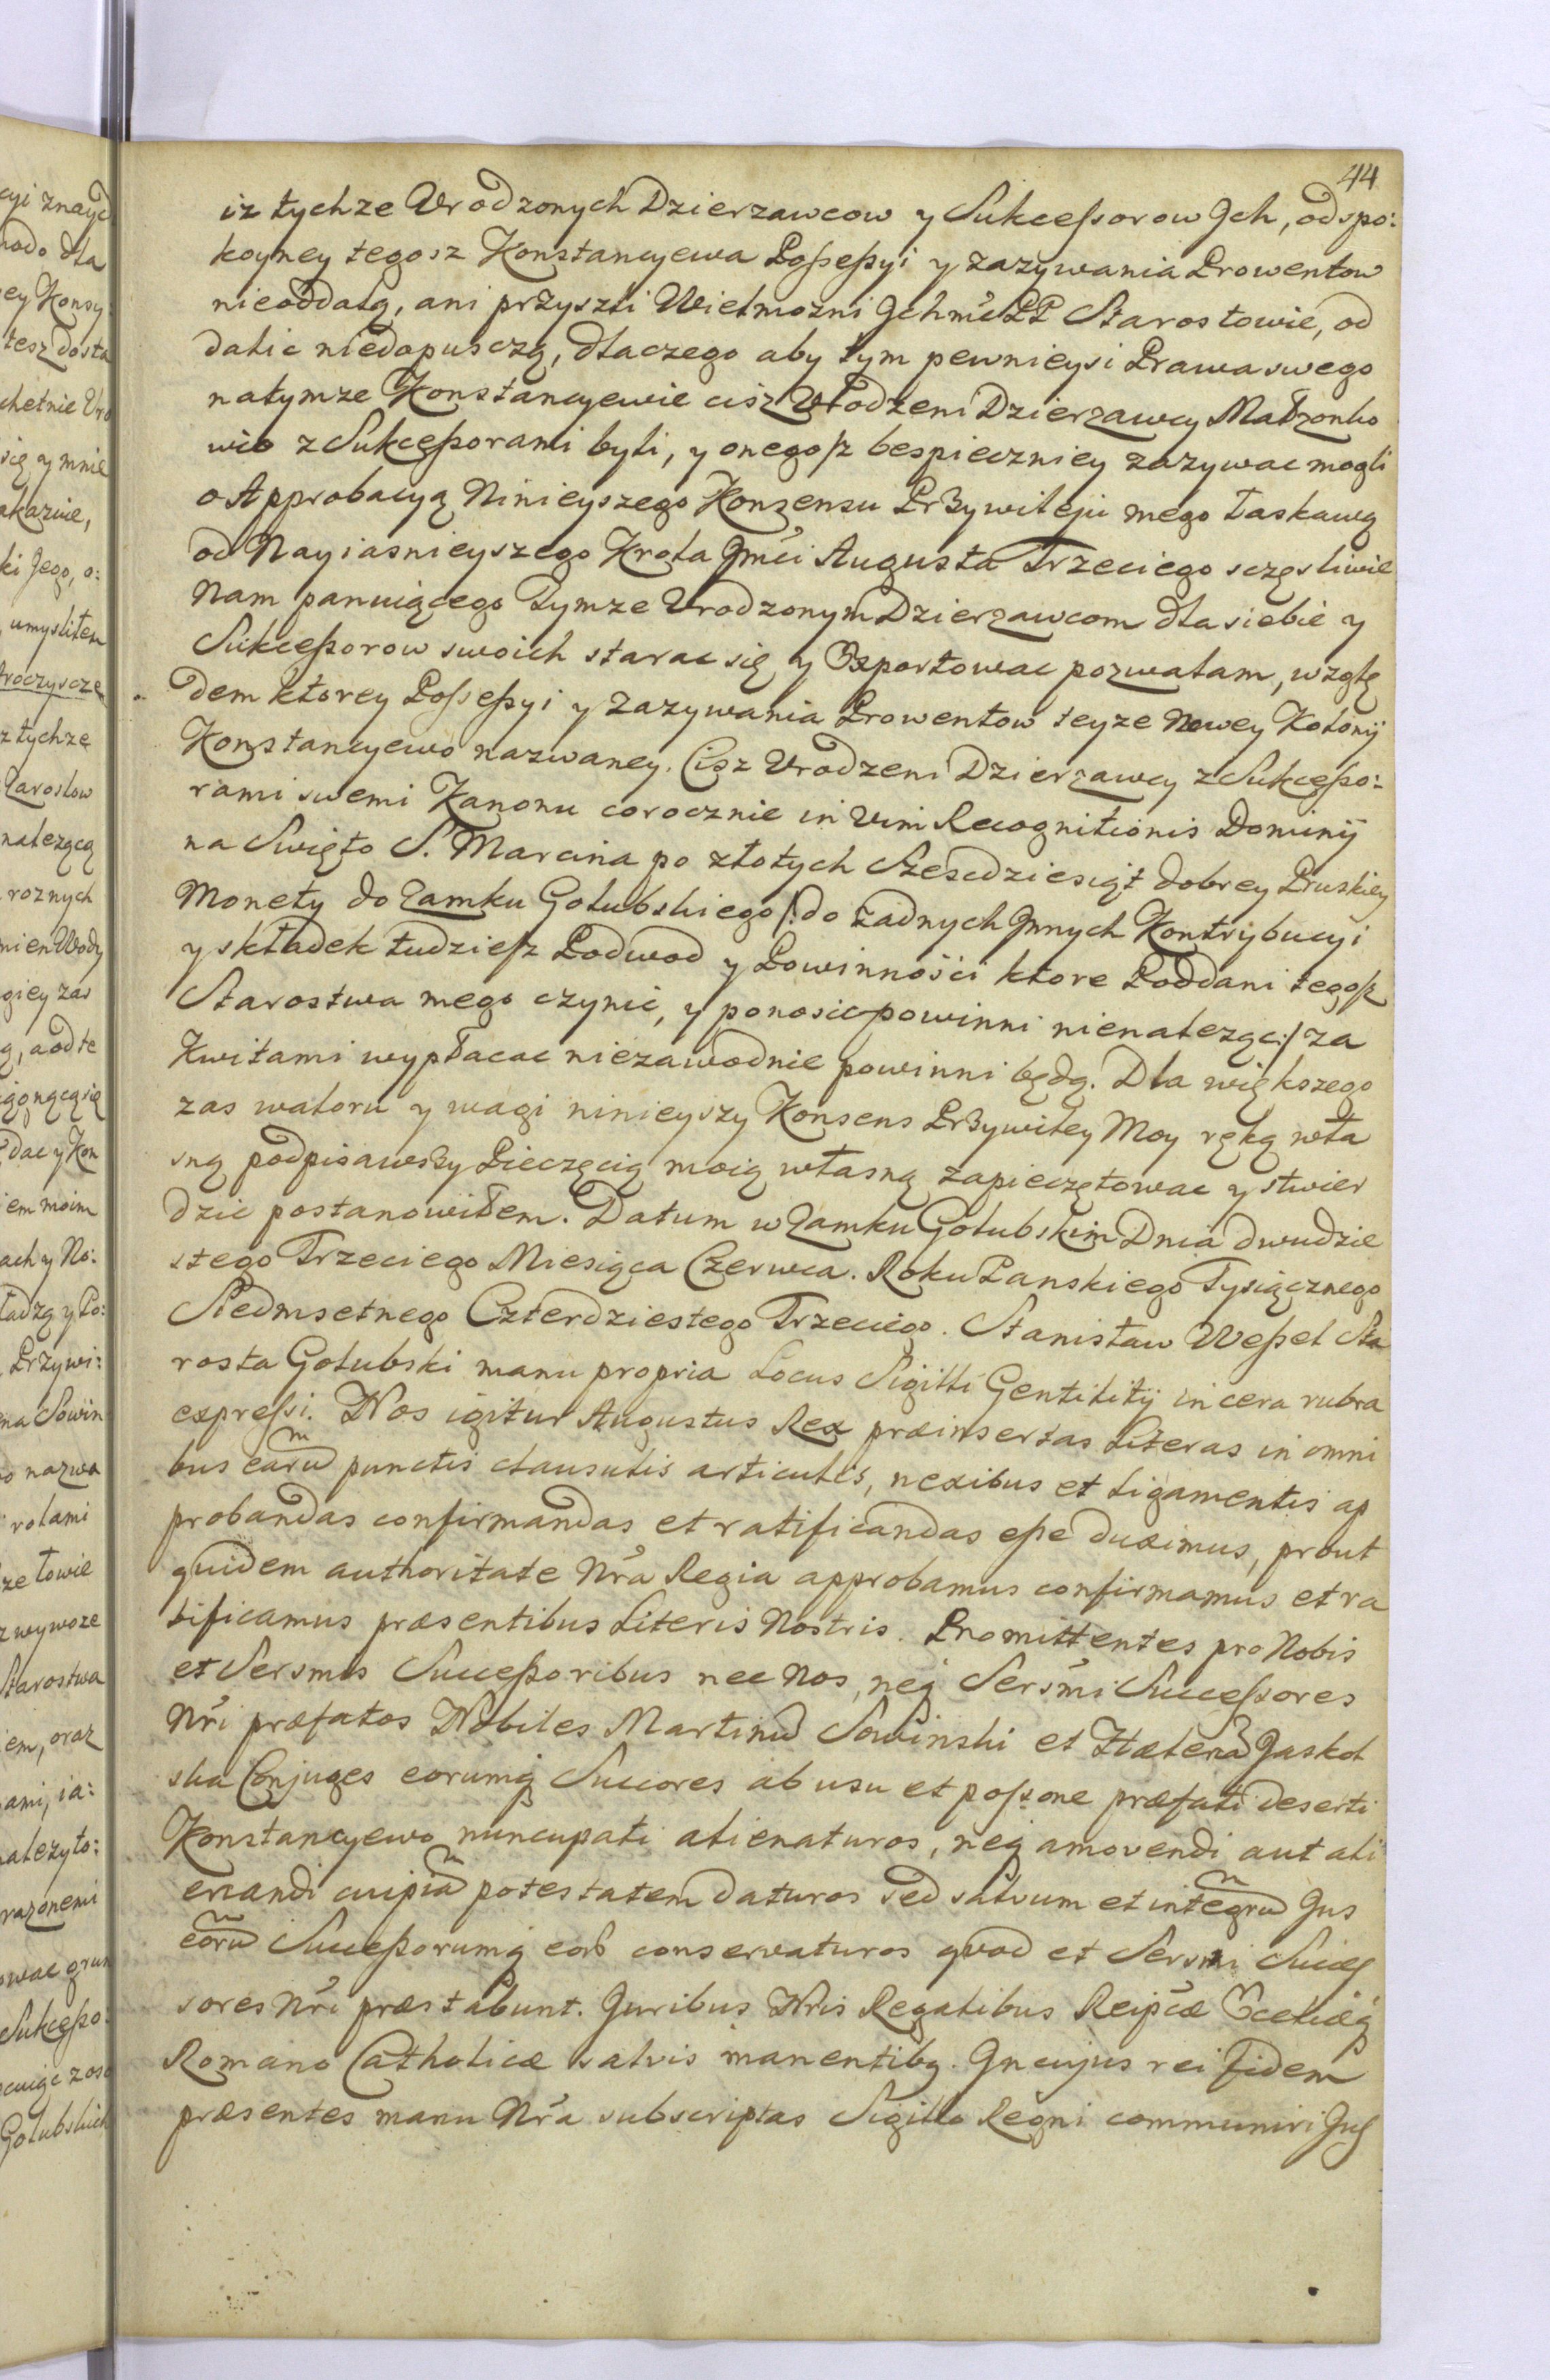 44
iz tychze Urodzonych Dzierzawcow y Sukcessorow Jch, od spo:
koyney tegosz Konstancyewa Possessyi y zazywania Prowentow
nieoddalą, ani przyszli Wielmozni Jchmć PP Starostowie, od
dalic niedopusczą, dlaczego aby tym pewnieysi Prawa swego
natymze Konstancyewie cisz Urodzeni Dzierzawcy Małzonko
wie z Sukcessorami byli, y onegosz bespieczniey zazywac mogli
o Approbacyą Ninieyszego Konsensu Przywileju mego łaskawą
od Nayiasnieyszego Krola Jmći Augusta Trzeciego sczęsliwie
Nam panuiącego Tymze Urodzonym Dzierzawcom dla siebie y
Sukcessorow swoich starac się y Exportowac pozwalam, wzglę
dem ktorey Possessyi y Zazywania Prowentow teyze Nowey Kolonij
Konstancyewo nazwaney. Cisz Urodzeni Dzierzawcy z Sukcesso:
rami swemi Kanonu corocznie in vim Recognitionis Dominij
na Swięto S. Marcina po złotych Szescdziesiąt dobrey Pruskiey
Monety do Zamku Golubskiego /: do zadnych Jnnych Kontrybucyi
y składek tudziesz Podwod y Powinnośći ktore Poddani tegosz
Starostwa mego czynić, y ponosic powinni nienaleząc :/ za
Kwitami wypłacac niezawodnie powinni będą. Dla większego
zas waloru y wagi ninieyszy Konsens Przywiley Moy ręką wła
sną podpisawszy Pieczęcią moią własną zapieczętowac y stwier
dzic postanowiłem. Datum w Zamku Golubskim Dnia dwudzie
stego Trzeciego Miesiąca Czerwca. Roku Panskiego Tysiącznego
Siedmsetnego Czterdziestego Trzeciego. Stanisław Wessel Sta
rosta Golubski manu propria Locus Sigilli Gentilitij in cera rubra
expressi. Nos igitur Augustus Rex præinsertas Literas in omni
bus earū punctis clausulis articulis, nexibus et ligamentis ap
probandas confirmandas et ratificandas esse duximus, prout
quidem authoritate Nrá Regia approbamus confirmamus et ra
tificamus præsentibus Literis Nostris. Promittentes pro Nobis
et Sersmis Successoribus nec Nos, neq́ Sersmi Successores
Nri præfatos Nobiles Martinū Sowinski et Jaskol
ska Conjuges eorumq́ Succores ab usu et possone præfati deserti
Konstancyewo nuncupati alienaturos, neq́ amovendi aut ali
enandi cuipiā potestatem daturos sed salvum et integrū Jus
eorū Successorumq́ conservaturos qvod et Sersmi Succes
sores Nri præstabunt. Juribus Nris Regalibus Reipćæ Eccliæq́
Romano Catholicæ salvis manentibq. Jn cujus rei fidem
præsentes manu Nrá subscriptas Sigillo Regni communiri Jus